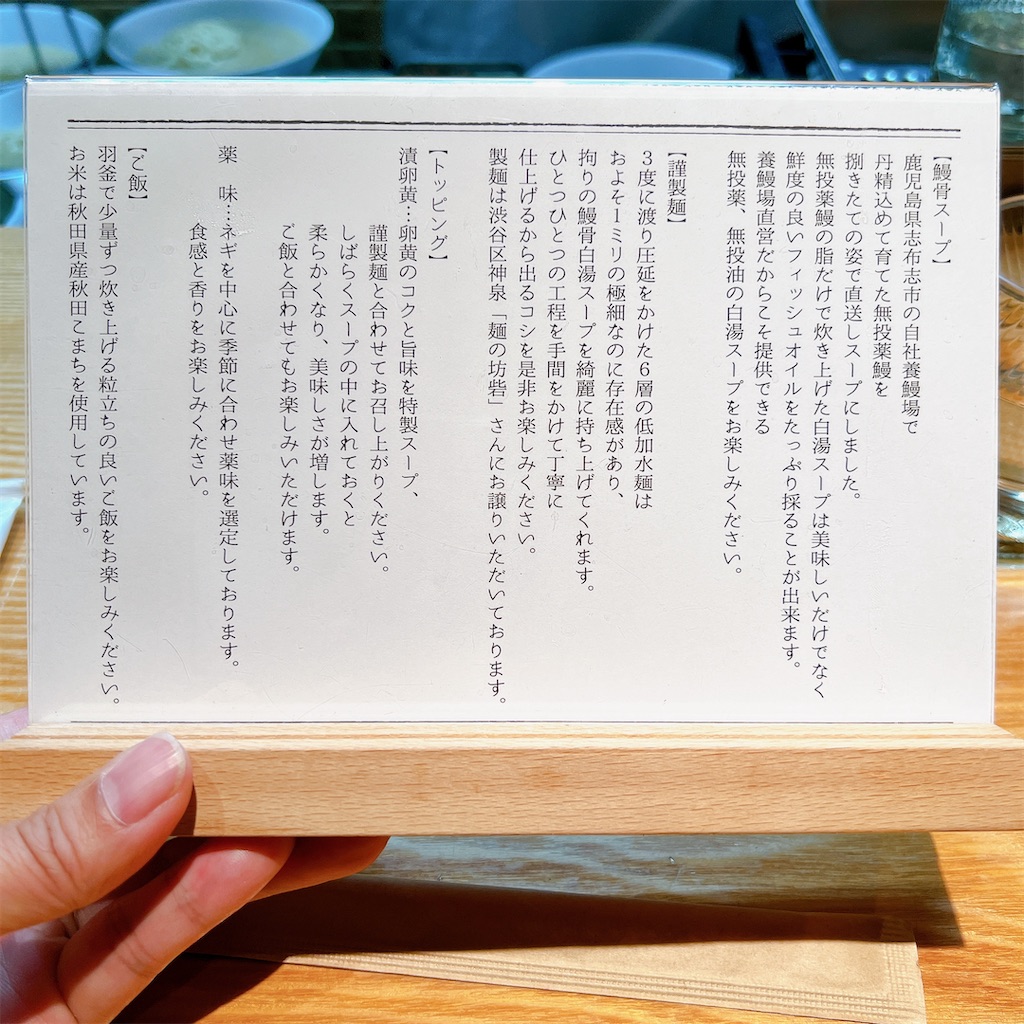 【鰻骨スープ】
鹿児島県志布志市の自社養鰻場で
丹精込めて育てた無投薬鰻を
捌きたての姿で直送しスープにしました。
無投薬鰻の脂だけで炊き上げた白湯スープは美味しいだけでなく
鮮度の良いフィッシュオイルをたっぷり採ることが出来ます。
養鰻場直営だからこそ提供できる
無投薬、無投油の白湯スープをお楽しみください。
【謹製麺】
3度に渡り圧延をかけた6層の低加水麺は
およそ1ミリの極細なのに存在感があり、
拘りの鰻骨白湯スープを綺麗に持ち上げてくれます。
ひとつひとつの工程を手間をかけて丁寧に
仕上げるから出るコシを是非お楽しみください。
製麺は渋谷区神泉「麺の坊砦」さんにお譲りいただいております。
【トッピング】
漬卵黄…卵黄のコクと旨味を特製スープ、
謹製麺と合わせてお召し上がりください。
しばらくスープの中に入れておくと
柔らかくなり、美味しさが増します。
ご飯と合わせてもお楽しみいただけます。
薬　味…ネギを中心に季節に合わせ薬味を選定しております。
食感と香りをお楽しみください。
【ご飯】
羽釜で少量ずつ炊き上げる粒立ちの良いご飯をお楽しみください。
お米は秋田県産秋田こまちを使用しています。